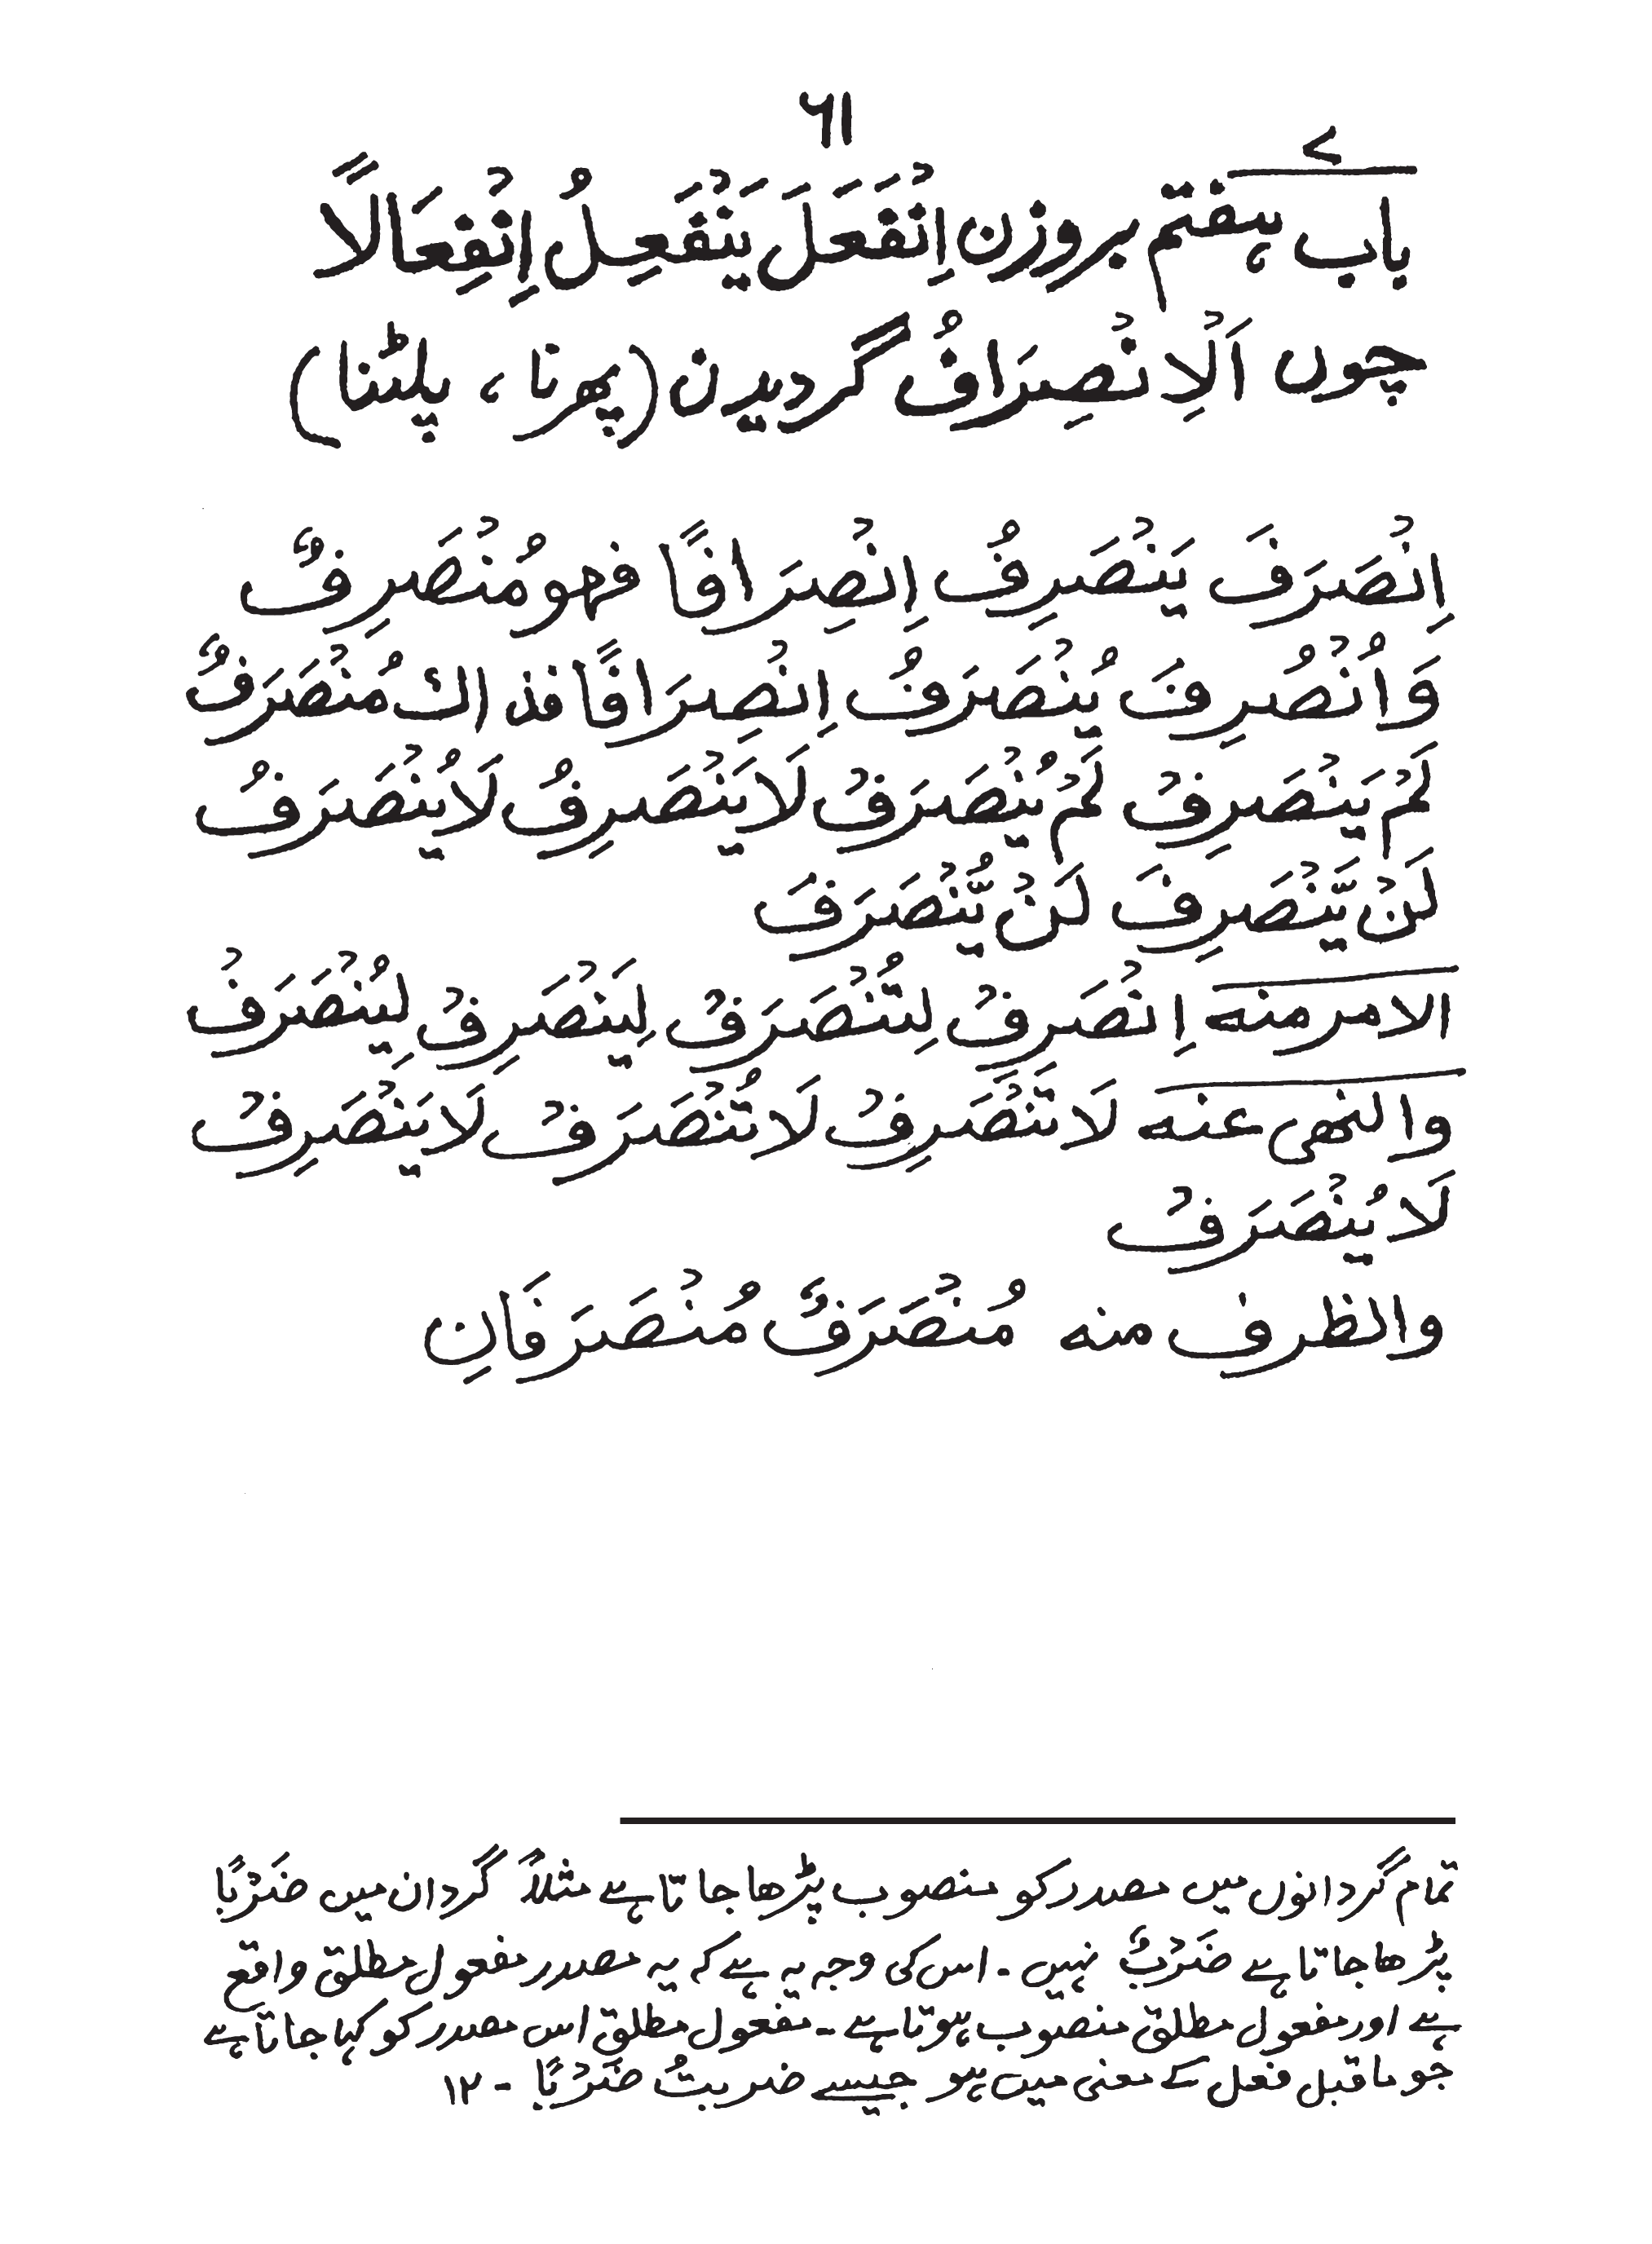 ۶۱
۷
باب ہفتم بروزن اِنْفَعَلَ يَنْفَعِلُ اِنْفِعَالاً
چوں اَلْاِنْصِرَافُ گردیدن (پھرنا ، پلٹنا)
اِنْصَرَفَ يَنْصَرِفُ اِنْصِرَافًا فهو مُنْصَرِفٌ
وَاُنْصُرِفَ يُنْصَرَفُ اِنْصِرَافًا فذاك مُنْصَرَفٌ
لَمْ يَنْصَرِفْ لَمْ يُنْصَرَفْ لَا يَنْصَرِفُ لَا يُنْصَرَفُ
لَنْ يَّنْصَرِفَ لَنْ يُّنْصَرَفَ
الامر منه اِنْصَرِفْ لِتُنْصَرَفْ لِيَنْصَرِفْ لِيُنْصَرَفْ
والنهى عنه لَا تَنْصَرِفْ لَا تُنْصَرَفْ لَا يَنْصَرِفْ
لَا يُنْصَرَفْ
والظرف منه مُنْصَرَفٌ مُنْصَرَفَانِ
تمام گردانوں میں مصدر کو منصوب پڑھا جاتا ہے مثلاً گردان میں ضَرْبًا
پڑھا جاتا ہے ضَرْبٌ نہیں ۔ اس کی وجہ یہ ہے کہ یہ مصدر مفعول مطلق واقع
ہے اور مفعول مطلق منصوب ہوتا ہے ۔ مفعول مطلق اس مصدر کو کہا جاتا ہے
جو ماقبل فعل کے معنی میں ہو جیسے ضربتُ ضَرْبًا ۔ ۱۲